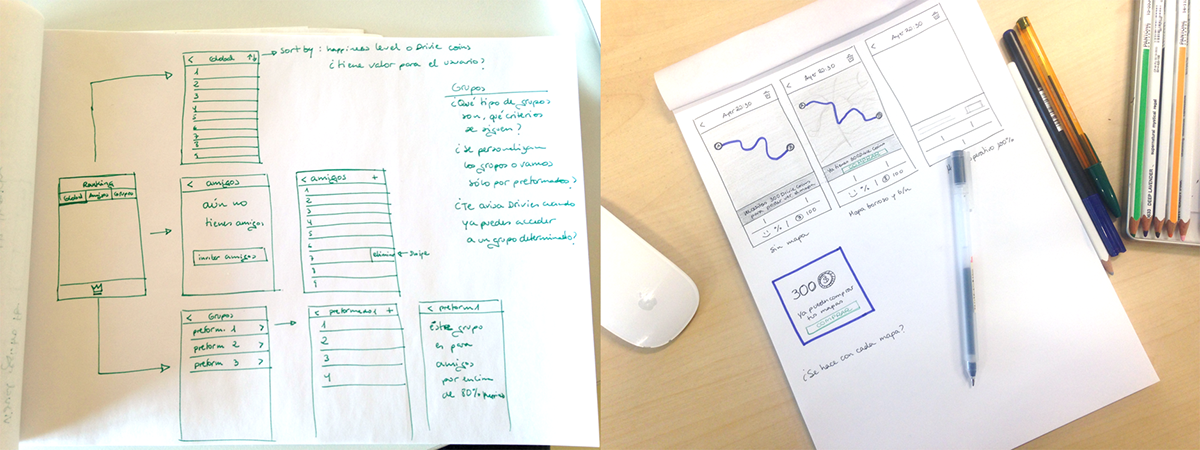 < Global ↑↓
→ sort by: happiness level o Drivie coins
¿tiene valor para el usuario?
1
2
3
4
5
6
7
Grupos
¿Qué tipo de grupos
son, qué criterios
se siguen?
¿se personalizan
los grupos o vamos
sólo por preformados?
¿Te avisa Drivies cuando
ya puedes acceder
a un grupo determinado?
Ranking
Global Amigos Grupos
< amigos
aún no
tienes amigos
invitar amigos
< amigos +
1
2
3
4
5
6
7
eliminar ← Swipe
< Grupos
preform. 1 >
preform 2 >
preform 3 >
< preformados 1 +
1
2
3
4
< preform. 1
este grupo
es para
amigos
por encima
de 80%
< Ayer 20:30
< Ayer 20:30
< Ayer 20:30
% | 100
Sin mapa
COMPRAR
% | 100
Mapa borroso y b/n
100%
300
Ya puedes comprar
tus mapas
COMPRAR
¿Se hace con cada mapa?
DEEP LAVENDER